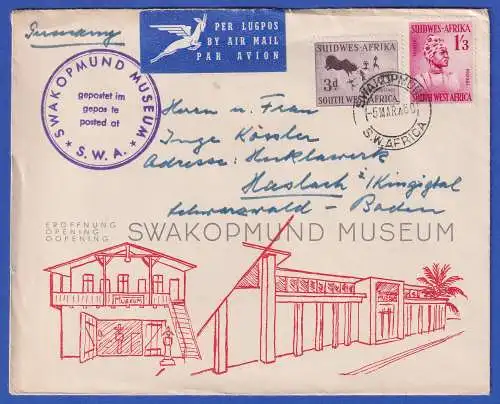 Germany
PER LUGPOS
BY AIR MAIL
PAR AVION
SUIDWES-AFRIKA
3d
SOUTH WEST AFRICA
SUIDWES-AFRIKA
1/3
SOUTH WEST AFRICA
SWAKOPMUND MUSEUM
gepostet im
gepos te
posted at
* S.W.A. *
SWAKOPMUND
-5 MAR 60
S.W. AFRICA
Herrn u. Frau
Inge Kössler
Adresse: Hucklawerk
Haslach i/Kingigtal
Schwarzwald - Baden
ERÖFFNUNG
OPENING
OOPENING
SWAKOPMUND MUSEUM
MUSEUM
MUSEUM